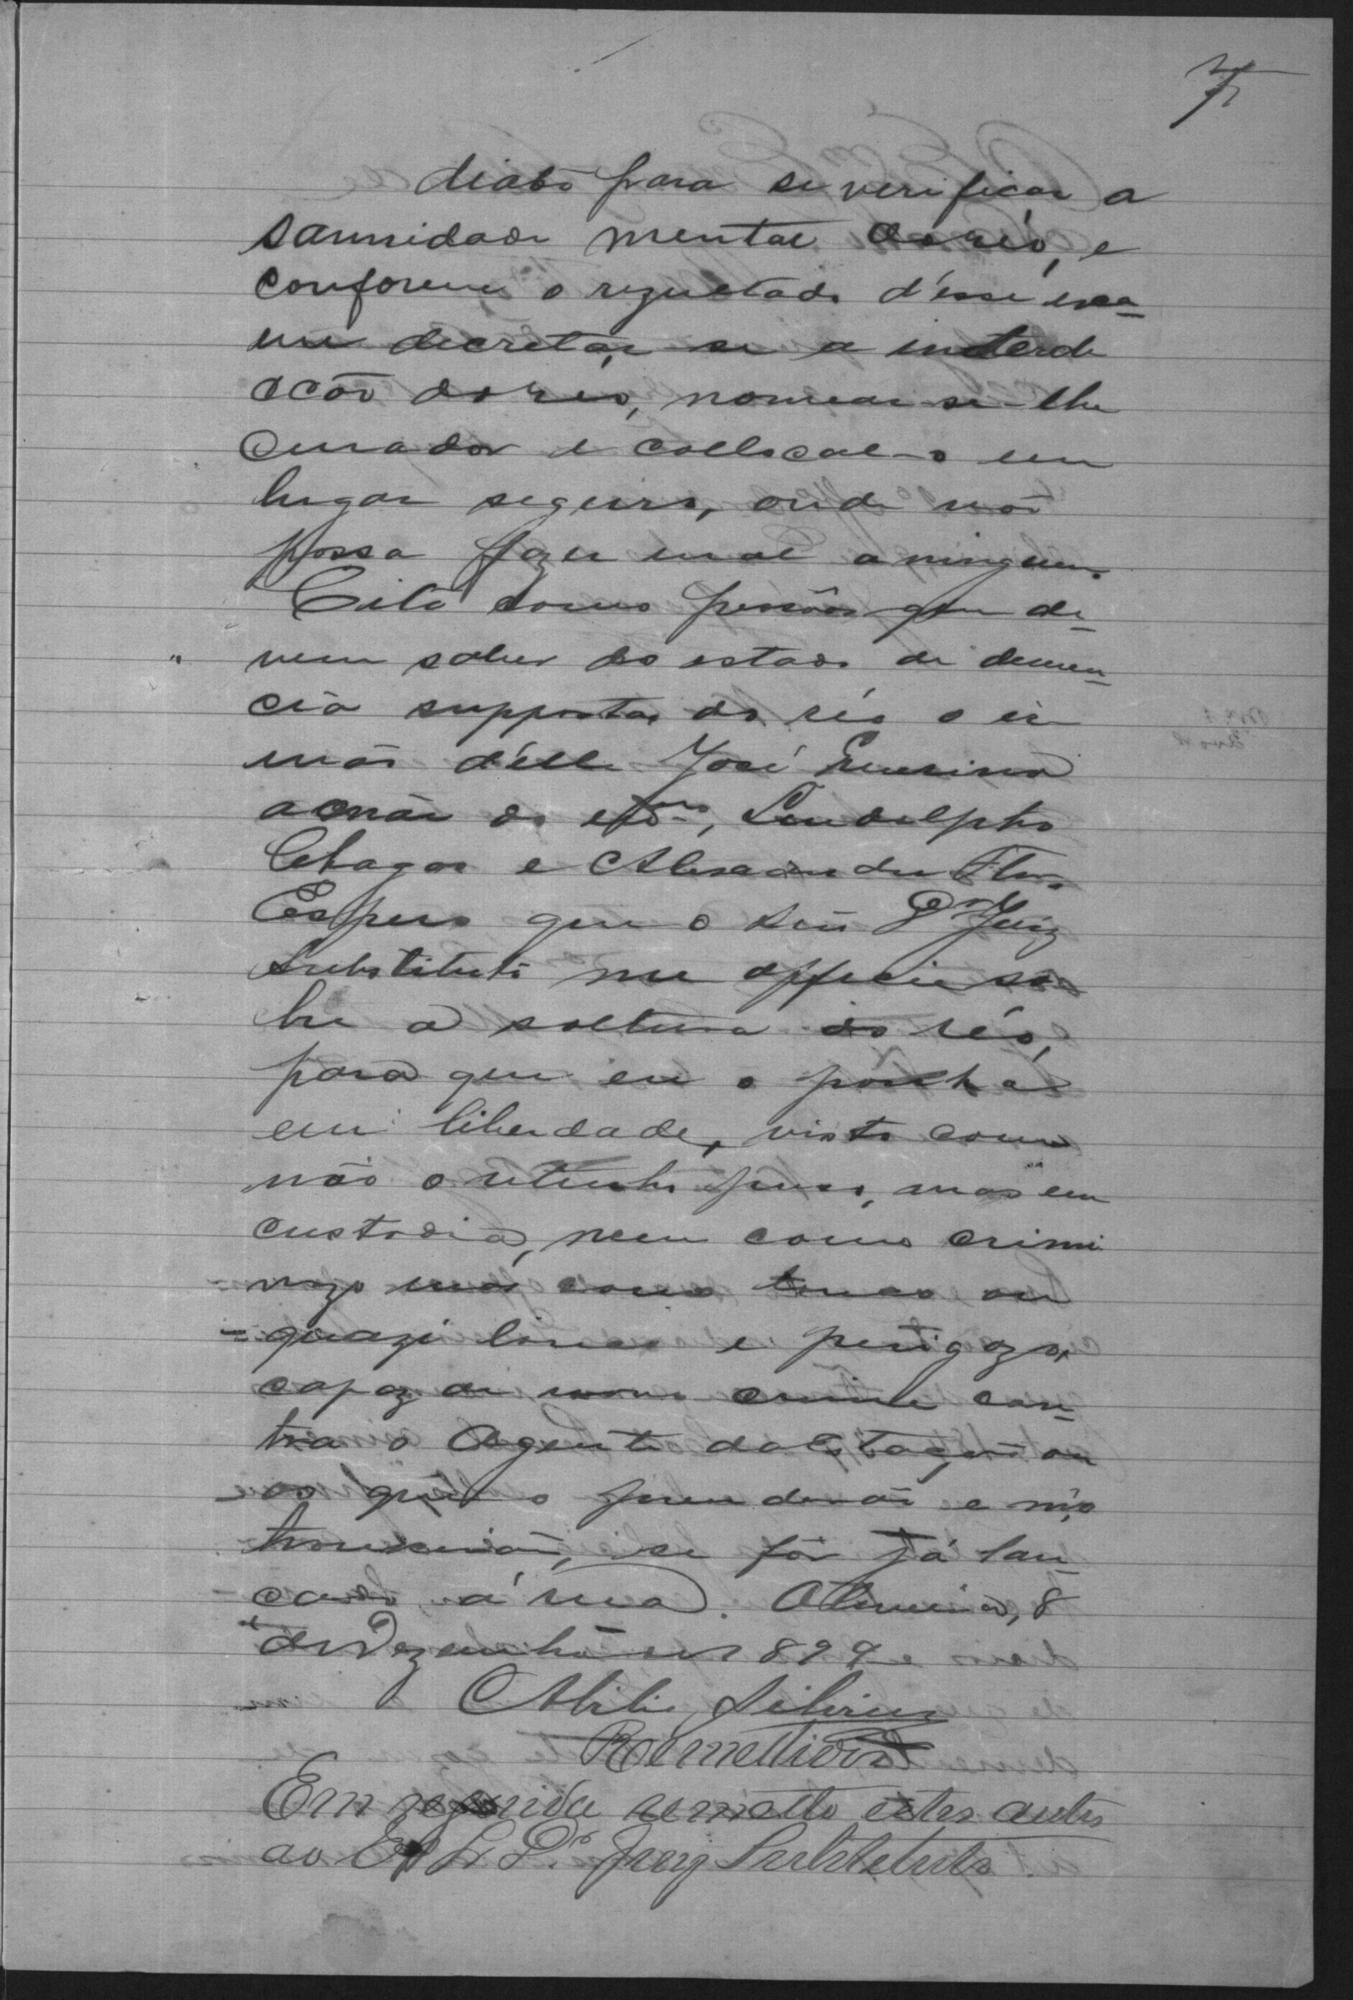 7
diato para se verificar a
sannidade mental do réo, e
conforme o rezultado d'esse exa-
me decretar se a interde
cção do réo, nomear-se-lhe
curador e collocal-o em
lugar seguro, onde não
possa fazer mal a ninguem.
Cito como pessôas que de-
vem saber do estado de demen-
cia supposta do réo o ir
mão d'elle José
do, Lindolpho
Chagas e Alexandre
Espero que o Snr Dor Juiz
Substituto me officie so-
bre a soltura do réo,
para que eu o ponha
em liberdade, visto como
não o retenho preso, mas em
custodia, nem como crimi
nozo mas como louco ou
quazi louco e perigozo,
capaz de novo crime con-
tra o Agente da Estação ou
os que o prenderão e m'o
trouxerão, se fôr já lan
çado á rua. 8
de Dezembro de 1897
Abilio
Remettidos
Em seguida remetto estes autos
ao Dr Juiz Substituto.